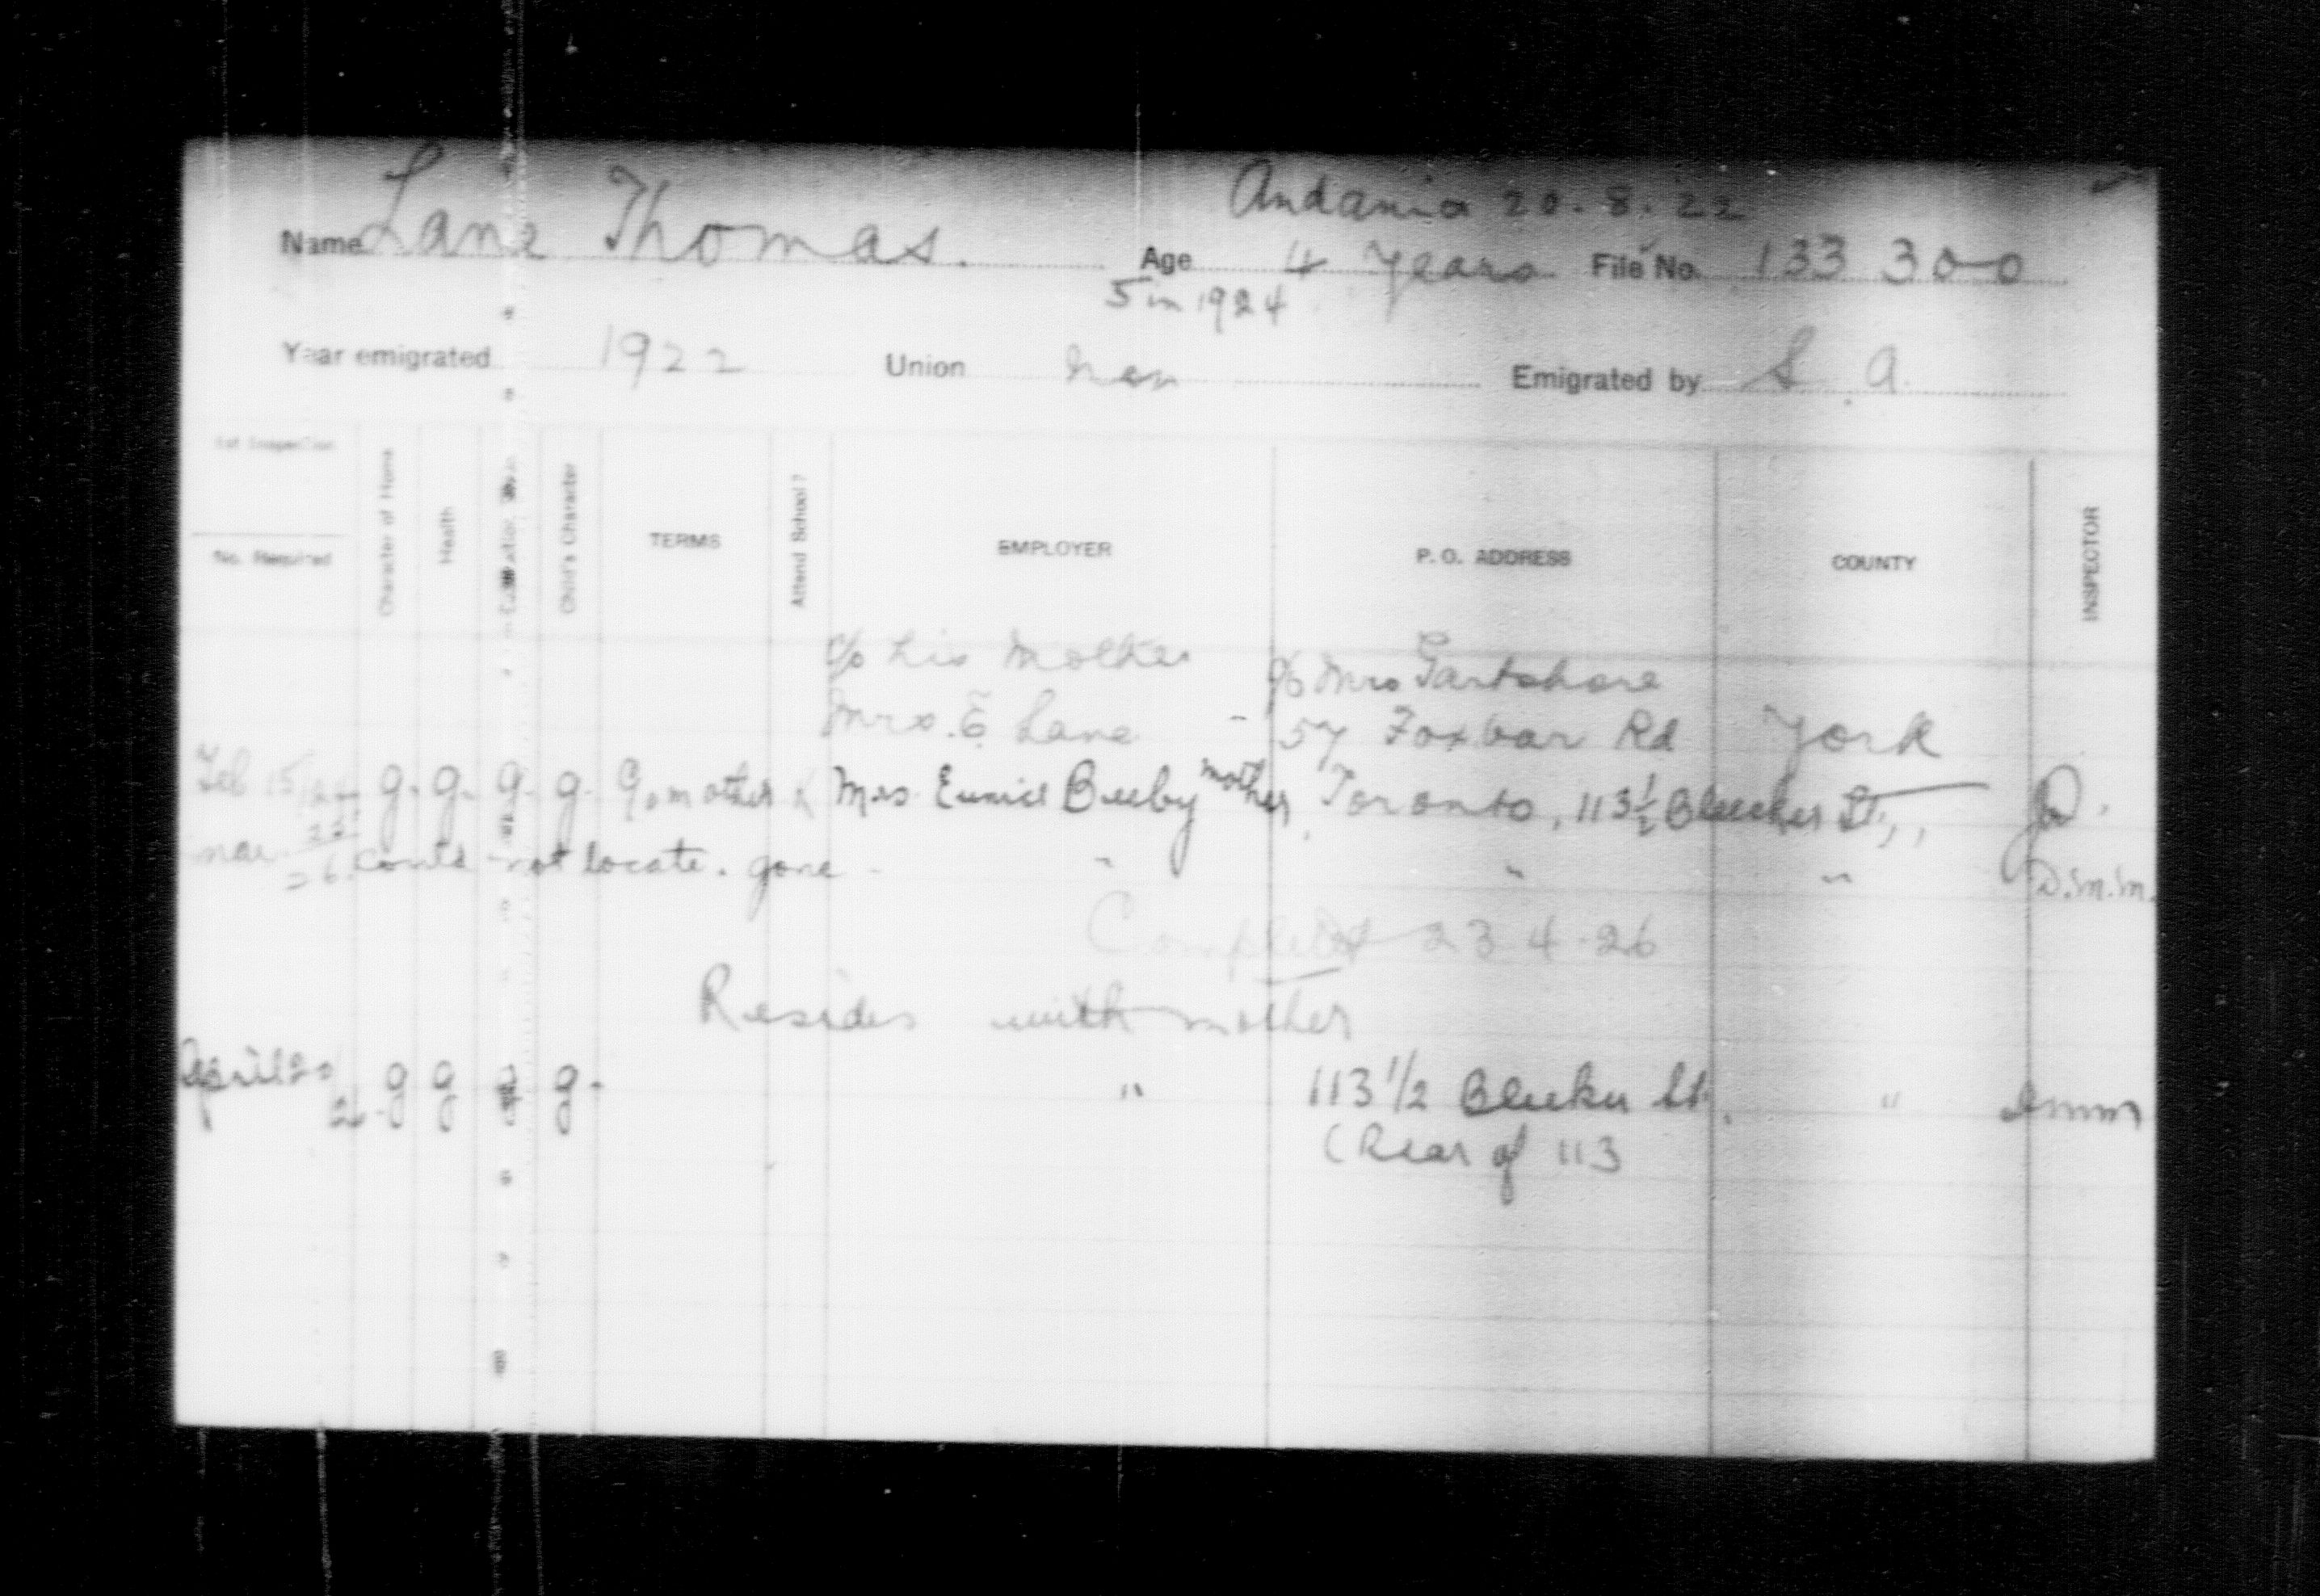 Andania 20.8.22
Name Lane Thomas. Age 4 Years File No. 133 300
5 in 1924
Year emigrated 1922 Union non Emigrated by S. A.
1st Inspection
No. Required
Character of Home
Health
Child's Character
TERMS
Attend School?
EMPLOYER
P. O. ADDRESS
COUNTY
INSPECTOR
c/o his Mother c/o Mrs Gartshore
Mrs. E Lane - 57 Foxbar Rd York
Feb 15/24 g. g. g. g. mother Mrs Eunice Beeby mother Toronto, 113½ Bleecker St.,
Mar 22/26 could not locate. gone - " " " D.M.M.
Completed 23 4-26
Resides with mother
April 20 26 g g g g. " 113 1/2 Bleeker St. " DMM
(Rear of 113